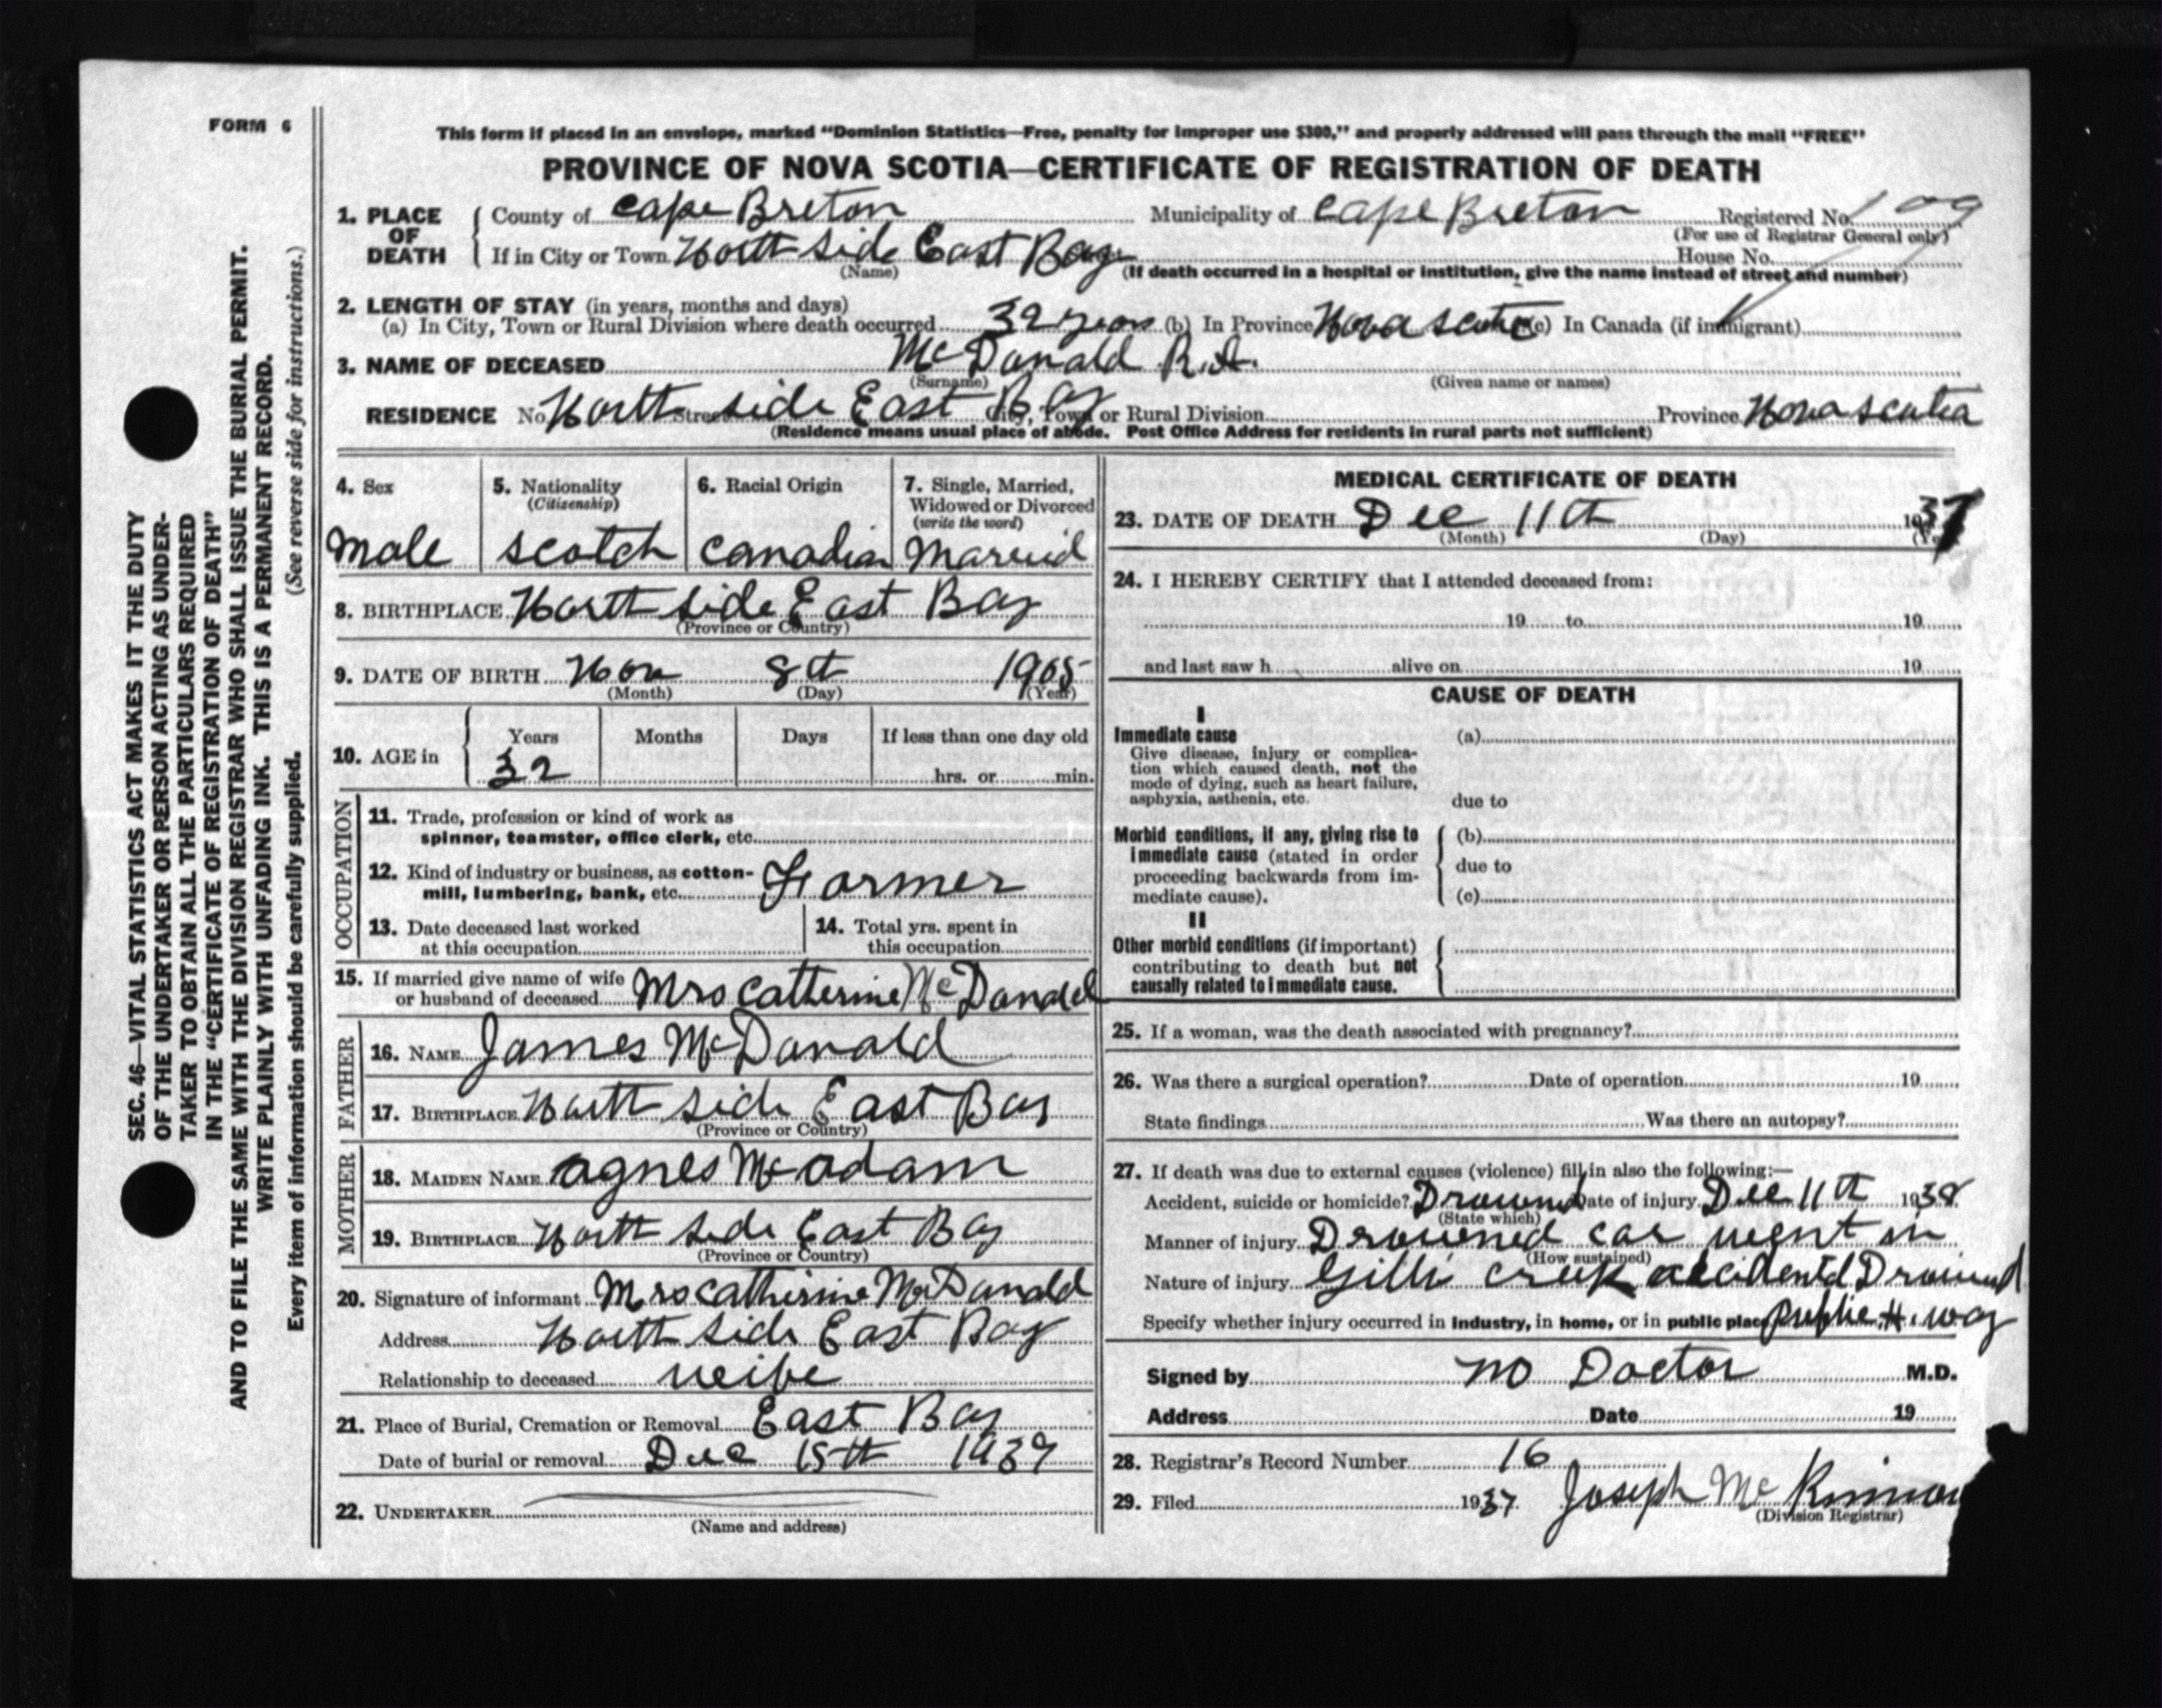 FORM 6
This form if placed in an envelope, marked "Dominion Statistics—Free, penalty for improper use $300," and properly addressed will pass through the mail "FREE"
PROVINCE OF NOVA SCOTIA—CERTIFICATE OF REGISTRATION OF DEATH
1. PLACE OF DEATH County of Cape Breton Municipality of Cape Breton Registered No.
(For use of Registrar General only)
If in City or Town North side East Bay House No.
(Name) (If death occurred in a hospital or institution, give the name instead of street and number)
2. LENGTH OF STAY (in years, months and days)
(a) In City, Town or Rural Division where death occurred 32 years (b) In Province Nova Scotia (c) In Canada (if immigrant)
3. NAME OF DECEASED McDonald R.A.
(Surname) (Given name or names)
RESIDENCE No. North Street side East Bay City, Town or Rural Division Province Nova scotia
(Residence means usual place of abode. Post Office Address for residents in rural parts not sufficient)
4. Sex
Male
5. Nationality
(Citizenship)
scotch
6. Racial Origin
canadian
7. Single, Married,
Widowed or Divorced
(write the word)
Married
8. BIRTHPLACE North side East Bay
(Province or Country)
9. DATE OF BIRTH Nov 8th 1905
(Month) (Day) (Year)
10. AGE in Years Months Days If less than one day old
32 hrs. or min.
OCCUPATION
11. Trade, profession or kind of work as
spinner, teamster, office clerk, etc.
12. Kind of industry or business, as cotton-
mill, lumbering, bank, etc. Farmer
13. Date deceased last worked
at this occupation
14. Total yrs. spent in
this occupation
15. If married give name of wife
or husband of deceased Mrs Catherine McDonald
FATHER
16. NAME James McDonald
17. BIRTHPLACE North side East Bay
(Province or Country)
MOTHER
18. MAIDEN NAME Agnes McAdam
19. BIRTHPLACE North side East Bay
(Province or Country)
20. Signature of informant Mrs Catherine McDonald
Address North side East Bay
Relationship to deceased weife
21. Place of Burial, Cremation or Removal East Bay
Date of burial or removal Dec 15th 1937
22. UNDERTAKER
(Name and address)
MEDICAL CERTIFICATE OF DEATH
23. DATE OF DEATH Dec 11th 1937
(Month) (Day) (Year)
24. I HEREBY CERTIFY that I attended deceased from:
19 to 19
and last saw h alive on 19
CAUSE OF DEATH
I
Immediate cause (a)
Give disease, injury or complica-
tion which caused death, not the
mode of dying, such as heart failure,
asphyxia, asthenia, etc. due to
Morbid conditions, if any, giving rise to (b)
immediate cause (stated in order
proceeding backwards from im- due to
mediate cause). (c)
II
Other morbid conditions (if important)
contributing to death but not
causally related to immediate cause.
25. If a woman, was the death associated with pregnancy?
26. Was there a surgical operation? Date of operation 19
State findings Was there an autopsy?
27. If death was due to external causes (violence) fill in also the following:—
Accident, suicide or homicide? Drowned Date of injury Dec 11th 1938
(State which)
Manner of injury Drowned car went in
(How sustained)
Nature of injury Gillis creek accidental Drowned
Specify whether injury occurred in industry, in home, or in public place public H. way
Signed by no Doctor M.D.
Address Date 19
28. Registrar's Record Number 16
29. Filed 1937 Joseph McKinnon
(Division Registrar)
SEC. 46—VITAL STATISTICS ACT MAKES IT THE DUTY
OF THE UNDERTAKER OR PERSON ACTING AS UNDER-
TAKER TO OBTAIN ALL THE PARTICULARS REQUIRED
IN THE "CERTIFICATE OF REGISTRATION OF DEATH"
AND TO FILE THE SAME WITH THE DIVISION REGISTRAR WHO SHALL ISSUE THE BURIAL PERMIT.
WRITE PLAINLY WITH UNFADING INK. THIS IS A PERMANENT RECORD.
Every item of information should be carefully supplied. (See reverse side for instructions.)